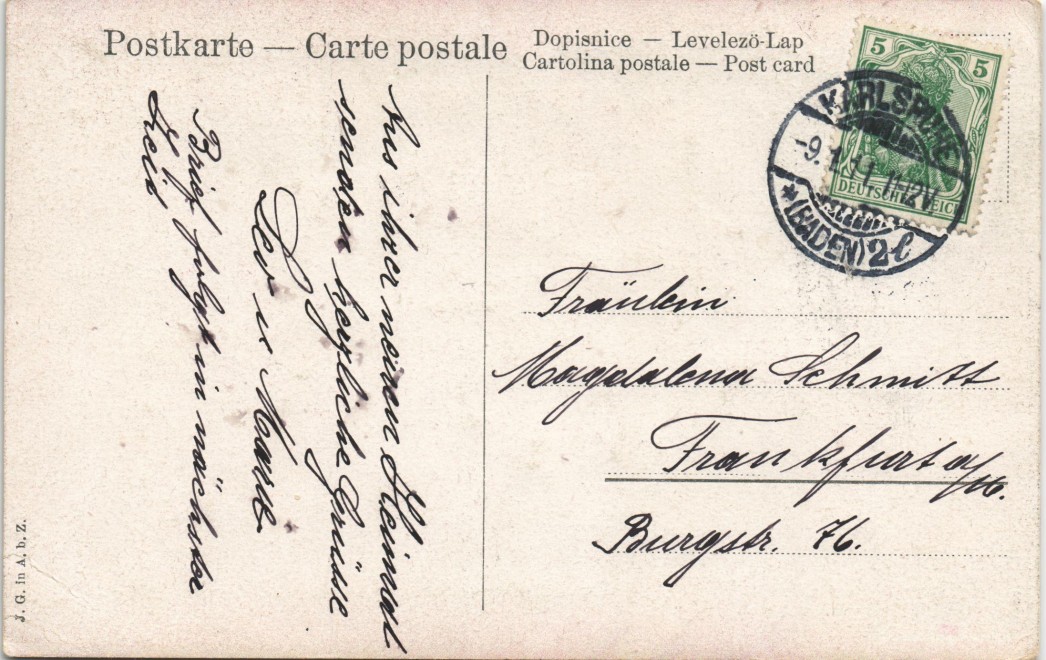 Postkarte — Carte postale
Dopisnice — Levelező-Lap
Cartolina postale — Post card
5 5
DEUTSCHES REICH
KARLSRUHE
-9.1.11. 11-12V.
* (BADEN) 2l
Aus ihrer neuen Heimat
senden herzliche Grüsse
Leo u Marie
Brief folgt in nächster
Zeit.
Fräulein
Magdalena Schmitt
Frankfurt a/M.
Burgstr. 76.
J. G. in A. b. Z.